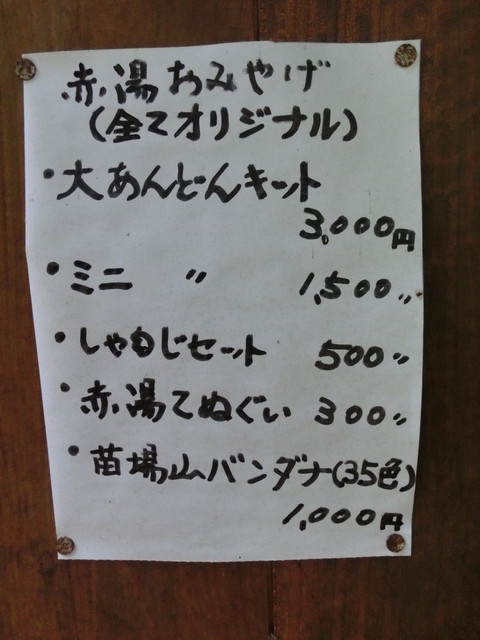 赤湯おみやげ
(全てオリジナル)
・大あんどんキット
3,000円
・ミニ 〃 1,500〃
・しゃもじセット 500〃
・赤湯てぬぐい 300〃
・苗場山バンダナ(35色)
1,000円